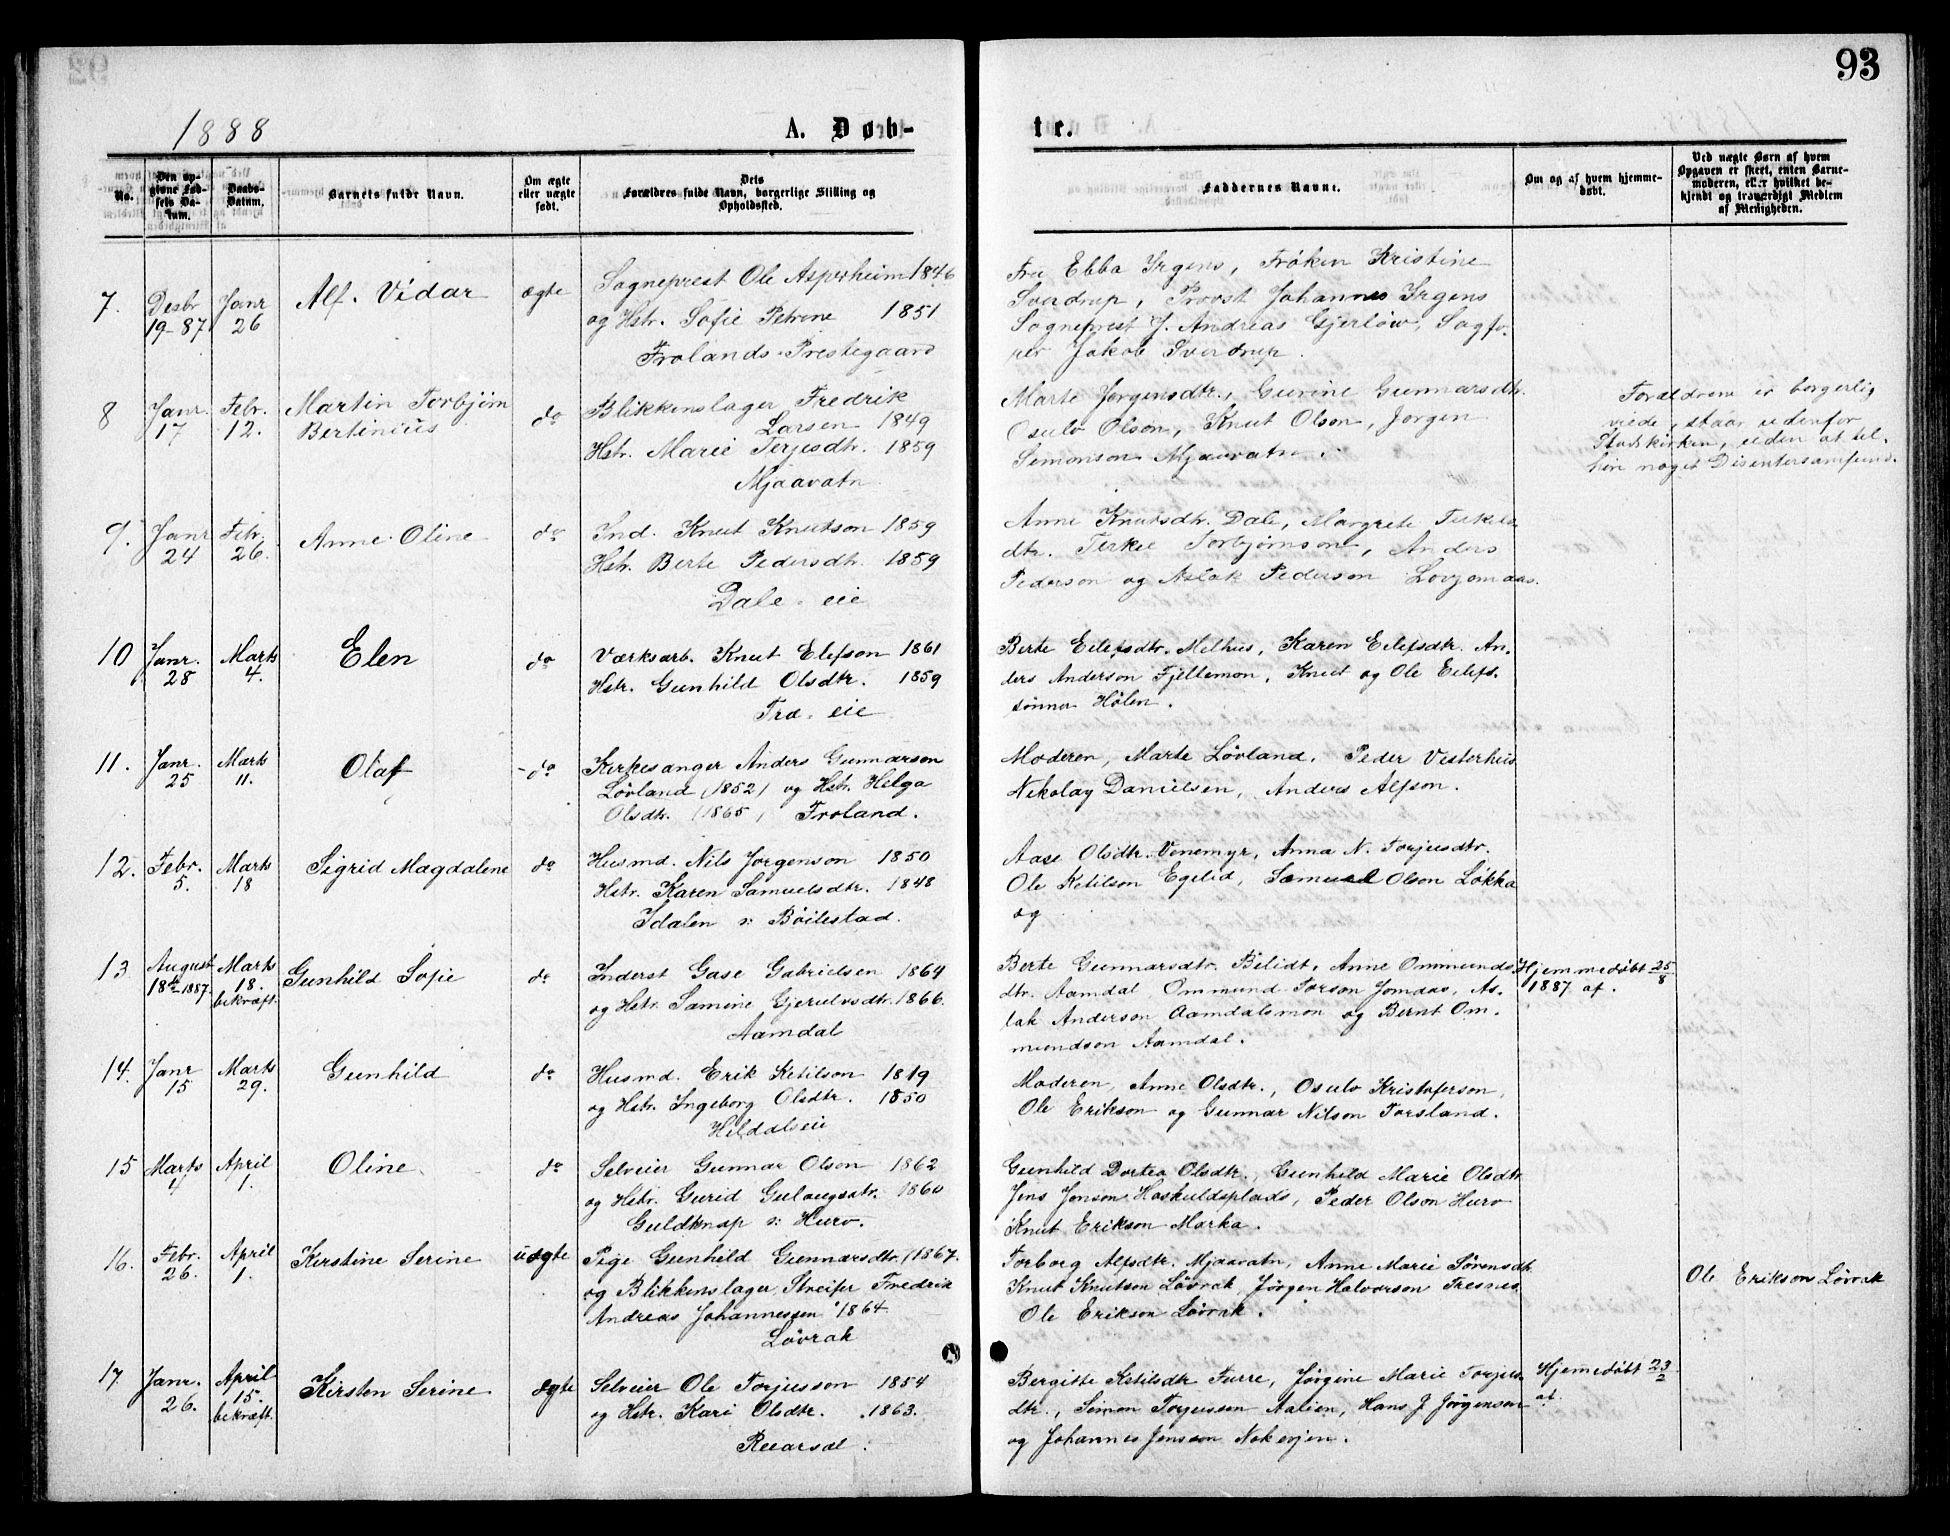 93
1888 A. Døb- te.
No. Den opgivne Fødsels Datum. Daabs-Datum. Barnets fulde Navn. Om ægte eller uægte født. Dets Forældres fulde Navn, borgerlige Stilling og Opholdssted. Faddernes Navne. Om og af hvem hjemmedøbt. Ved uægte Børn af hvem Opgaven er skeet, enten Barnemoderen, eller hvilket bekjendt og troværdigt Medlem af Menigheden.
7. Desbr 19-87 Janr 26 Alf. Vidar ægte
Sogneprest Ole Asperheim 1846
og Hstr. Sofie Petrine 1851
Frolands Prestegaard
Fru Ebba Irgens, Frøken Kristine
Sverdrup, Provst Johannes Irgens
Sogneprest J. Andreas Gjerløw, Sagfø-
rer Jakob Sverdrup.
8 Janr. 17 Febr. 12. Martin Torbjørn Bertinius do
Blikkenslager Fredrik
Larsen 1849
Hstr. Marie Terjesdtr. 1859
Mjaavatn
Marte Jørgensdtr., Gurine Gunnarsdtr.
Osulv Olson, Knut Olson, Jørgen
Simonson Mjaavatn.
Forældrene er borgerlig
viede, staar udenfor
Statskirken, uden at til-
høre noget Disentersamfund.
9. Janr 24 Febr. 26. Anne Oline do
Ind. Knut Knutson 1859
Hstr. Berte Pedersdtr. 1859
Dale eie
Anne Knutsdtr. Dale, Margrete Terkels
dtr. Terkel Torbjørnson, Anders
Pederson og Aslak Pederson Lovjomaas.
10 Janr. 28 Marts 4. Elen do
Værksarb. Knut Elefson 1861
Hstr. Gunhild Olsdtr. 1859
Træ. eie
Berte Eilefsdtr. Melhus, Karen Eilefsdtr. An-
ders Anderson Fjellemon, Knut og Ole Eilefs-
sønner Hølen.
11. Janr. 25 Marts 11. Olaf do
Kirkesanger Anders Gunnarson
Løvland (1852) og Hstr. Helga
Olsdtr. (1865, Froland.
Moderen, Marte Løvland. Peder Vesterhus
Nikolay Danielsen, Anders Alfson.
12. Febr. 5. Marts 18 Sigrid Magdalene do
Husmd. Nils Jørgenson 1850
Hstr. Karen Samuelsdtr. 1848
Idalen s: Bøilestad.
Aase Olsdtr. Venemyr, Anna N. Torjusdtr.
Ole Ketilson Egelid, Samuel Olson Løkka
og
13 August 18de 1887. Marts 18. bekræft. Gunhild Sofie do
Inderst Gase Gabrielsen 1864
og Hstr. Samine Gjerulvsdtr. 1866.
Aamdal
Berte Gunnarsdtr. Bilidt, Anne Ommunds
dtr. Aamdal Ommund Torson Jomaas, As-
lak Anderson Aamdalsmon og Bernt Om-
mundson Aamdal.
Hjemmedøbt 25/8
1887 af.
14. Janr 15 Marts 29. Gunhild do
Husmd. Erik Ketilson 1819
og Hstr. Ingeborg Olsdtr. 1850
Hildalseie
Moderen, Anne Olsdtr., Osulv Kristoferson,
Ole Erikson og Gunnar Nilson Torsland.
15 Marts 4 April 1. Oline do
Selveier Gunnar Olson 1862
og Hstr. Gurid Gulaugsdtr. 1860
Guldknap s: Hurv.
Gunhild Dortea Olsdtr., Gunhild Marie Olsdtr
Jens Jenson Haskuldsplads, Peder Olson Hurv
Knut Erikson Marka.
16. Febr. 26. April 1. Kirstine Serine uægte
Pige Gunhild Gunnarsdtr. (1867.
og Blikkenslager, Streifer Fredrik
Andreas Johannessen 1864.
Løvrak
Torborg Alfsdtr. Mjaavatn, Anne Marie Sørensdtr.
Knut Knutson Løvrak, Jørgen Halvorson Tresnes
Ole Erikson Løvrak.
Ole Erikson Løvrak
17 Janr. 26. April 15. bekræft. Kirsten Serine ægte
Selveier Ole Torjusson 1854
og Hstr. Kari Olsdtr. 1863.
Reiarsdl.
Bergitte Ketilsdtr Furre, Jørgine Marie Torjus
dtr., Simon Torjussen Aalien, Hans J Jørgensen
og Johannes Jensson Nokevjen.
Hjemedøbt 23/2
af.